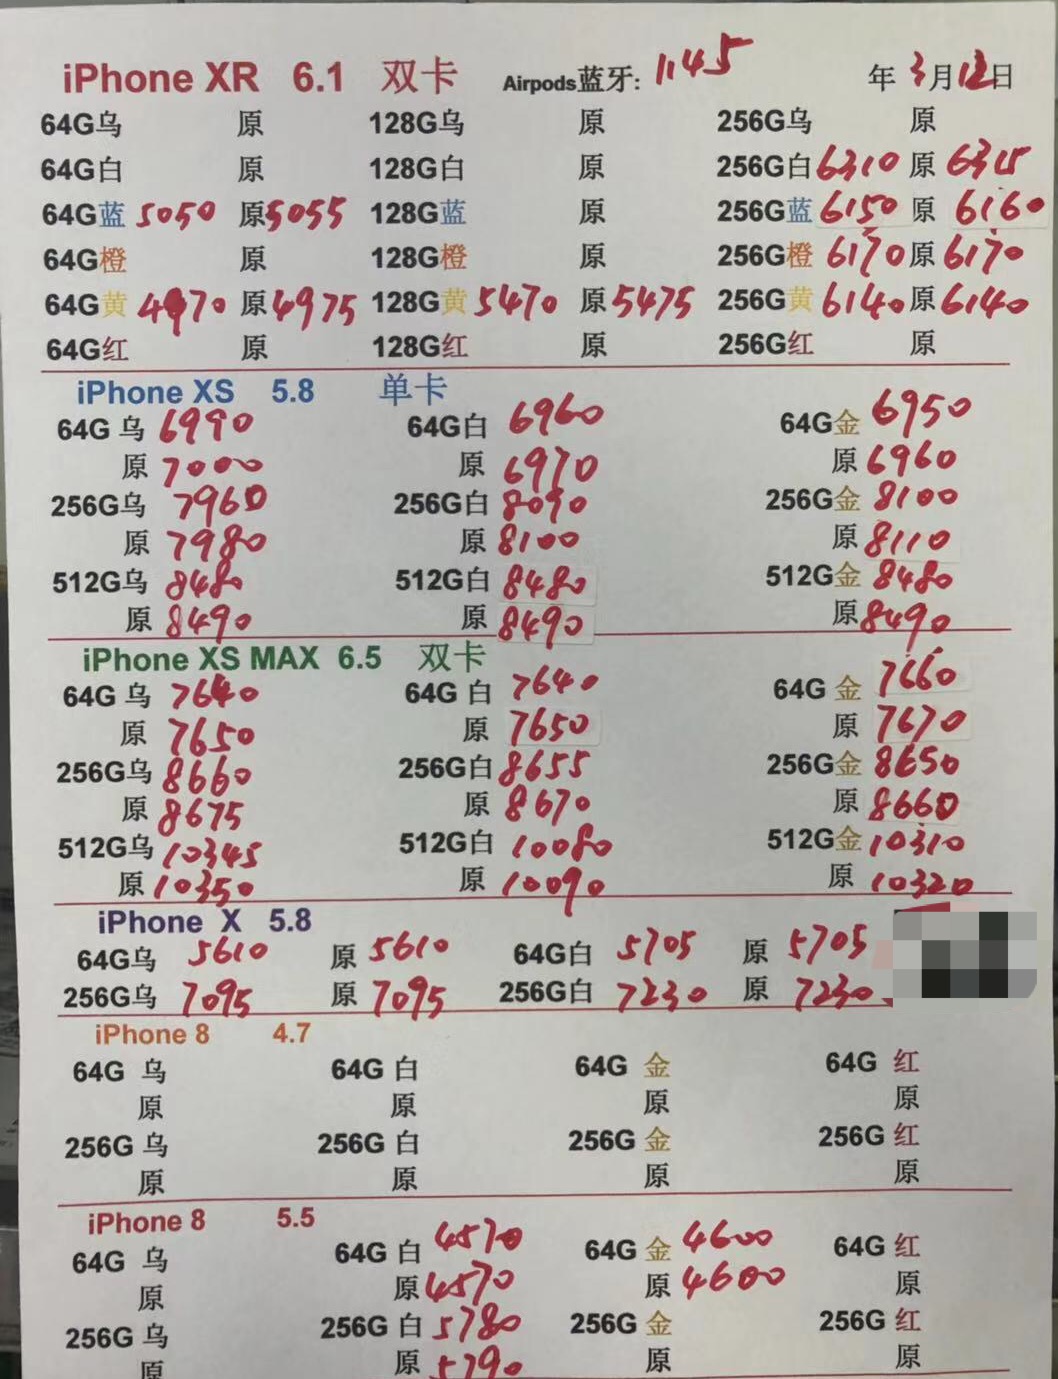 iPhone XR 6.1 双卡 Airpods蓝牙: 1145 年 3月12日
64G乌 原 128G乌 原 256G乌 原
64G白 原 128G白 原 256G白 6310 原 6315
64G蓝 5050 原5055 128G蓝 原 256G蓝 6150 原 6160
64G橙 原 128G橙 原 256G橙 6170 原 6170
64G黄 4970 原4975 128G黄 5470 原5475 256G黄 6140 原6140
64G红 原 128G红 原 256G红 原
iPhone XS 5.8 单卡
64G 乌 6990 64G白 6960 64G金 6950
原 7000 原 6970 原 6960
256G乌 7960 256G白 8090 256G金 8100
原 7980 原 8100 原 8110
512G乌 8480 512G白 8480 512G金 8480
原 8490 原 8490 原 8490
iPhone XS MAX 6.5 双卡
64G 乌 7640 64G 白 7640 64G 金 7660
原 7650 原 7650 原 7670
256G乌 8660 256G白 8655 256G金 8650
原 8675 原 8670 原 8660
512G乌 10345 512G白 10080 512G金 10310
原 10350 原 10090 原 10320
iPhone X 5.8
64G乌 5610 原 5610 64G白 5705 原 5705
256G乌 7095 原 7095 256G白 7230 原 7230
iPhone 8 4.7
64G 乌 64G 白 64G 金 64G 红
原 原 原 原
256G 乌 256G 白 256G 金 256G 红
原 原 原 原
iPhone 8 5.5
64G 乌 64G 白 4570 64G 金 4600 64G 红
原 原 4570 原 4600 原
256G 乌 256G 白 5780 256G 金 256G 红
原 原 5790 原 原